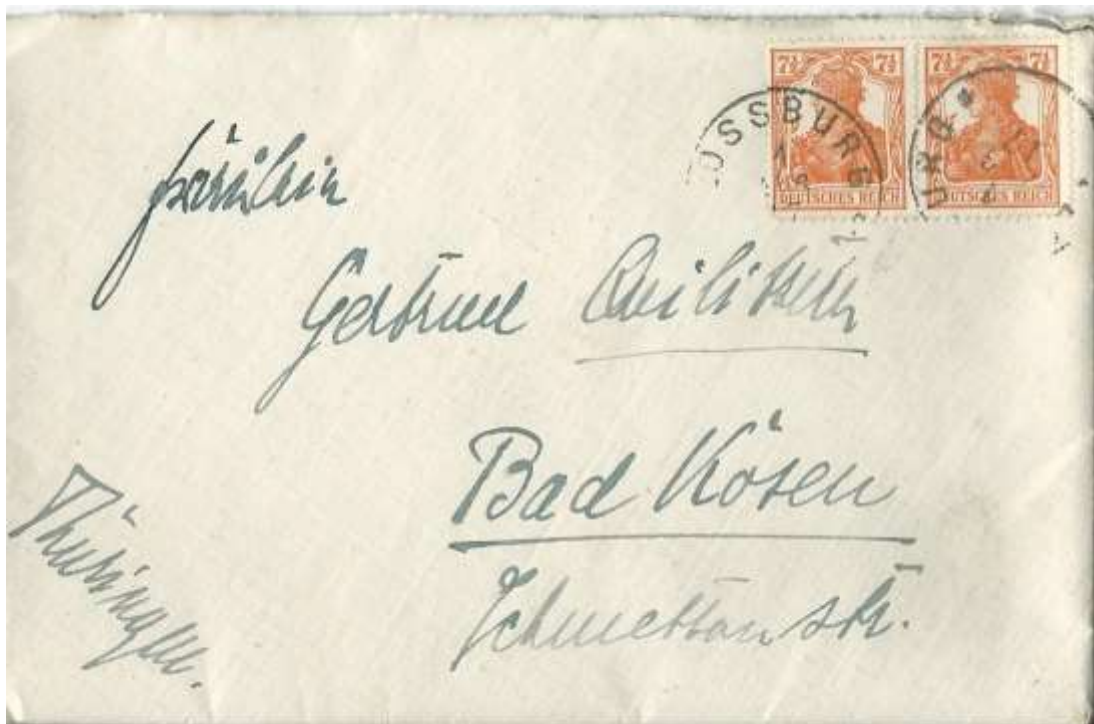 7½ 7½ 7½ 7½
DEUTSCHES REICH DEUTSCHES REICH
OSSBURG
Fräulein
Gertrud
Bad Kösen
Schmettaustr.
Thüringen.